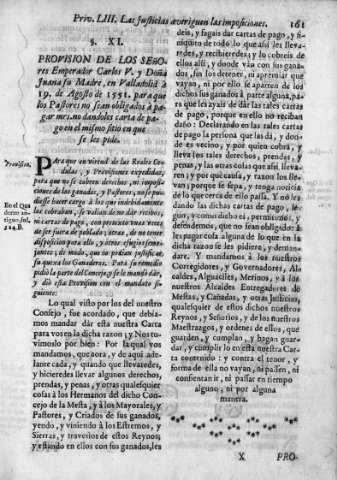 Priv. LIII. Las Justicias averiguen las imposiciones. 161
§. XI.
PROVISION DE LOS SEÑO-
res Emperador Carlos V. y Doña
Juana su Madre, en Valladolid à
19. de Agosto de 1551. para que
los Pastores no sean obligados à pa-
gar mrs. no dandoles carta de pa-
go en el mismo sitio en que
se les pide.
Provision.
En el Qua
derno an-
tiguo, fol.
224. B.
Para que en virtud de las Reales Ce-
dulas, y Provisiones expedidas,
para que no se cobren derechos, ni imposi-
ciones de los ganados, y Pastores, no se pu-
diesse hacer cargo à los que indebidamente
los cobraban, se valian de no dàr recibos,
ni cartas de pago, con pretexto unas veces
de ser fuera de poblado; otras, de no tener
disposicion para ello, y otras excusas seme-
jantes; de modo, que no podian justificar
la quexa los Ganaderos. Para su remedio
pidiò la parte del Concejo, y se le mandò dàr,
y diò esta Provision con el mandato si-
guiente.
Lo qual visto por los del nuestro
Consejo, fue acordado, que debia-
mos mandar dàr esta nuestra Carta
para vos en la dicha razon; y Nos tu-
vimoslo por bien: Por la qual vos
mandamos, que aora, y de aqui ade-
lante cada, y quando que llevaredes,
y hicieredes llevar algunos derechos,
prendas, y penas, y otras qualesquier
cosas à los Hermanos del dicho Con-
cejo de la Mesta, y à los Mayorales, y
Pastores, y Criados de sus ganados,
yendo, y viniendo à los Estremos, y
Sierras, y travesios de estos Reynos,
y estando en ellos con sus ganados, les
deis, y fagais dar cartas de pago, y fi-
niquito de todo lo que assi les lleva-
redes, y recibieredes, y lo hobiere de
ellos assi, y donde vàn con sus gana-
dos, sin los detener, ni apremiar que
vayan, ni por ello se aparten de los
dichos sus ganados à parte alguna, pa-
ra que ayais de dàr las tales cartas de
pago, porque en ello no reciban
daño: Declarando en las tales cartas
de pago la persona que las dà, y don-
de es vecino; y por quien cobra, y
lleva los tales derechos, prendas, y
penas, y las otras cosas que assi lleva-
re; y por què causa, y razon los lle-
van; porque se sepa, y tenga noticia
porquè razon se las llevan. Y no dan-
do las dichas cartas de pago, se-
gun, y como dicho es, permitimos, y
defendemos, que no sean obligados à
les pagar cosa alguna de lo que en la
dicha razon se les pidiere, y deman-
dare. Y mandamos à los nuestros
Corregidores, y Governadores, Al-
caldes, Alguaciles, Merinos, y à los
nuestros Alcaldes Entregadores de
Mestas, y Cañadas, y otras Justicias,
qualesquier de estos dichos nuestros
Reynos, y Señorios, y de los nuestros
Maestrazgos, y ordenes de ellos, que
guarden, y cumplan, y hagan guar-
dar, y cumplir lo en esta nuestra Car-
ta contenido: y contra el tenor, y
forma de ella no vayan, ni passen, ni
consientan ir, ni passar en tiempo
alguno, ni por alguna
manera.
X PRO-